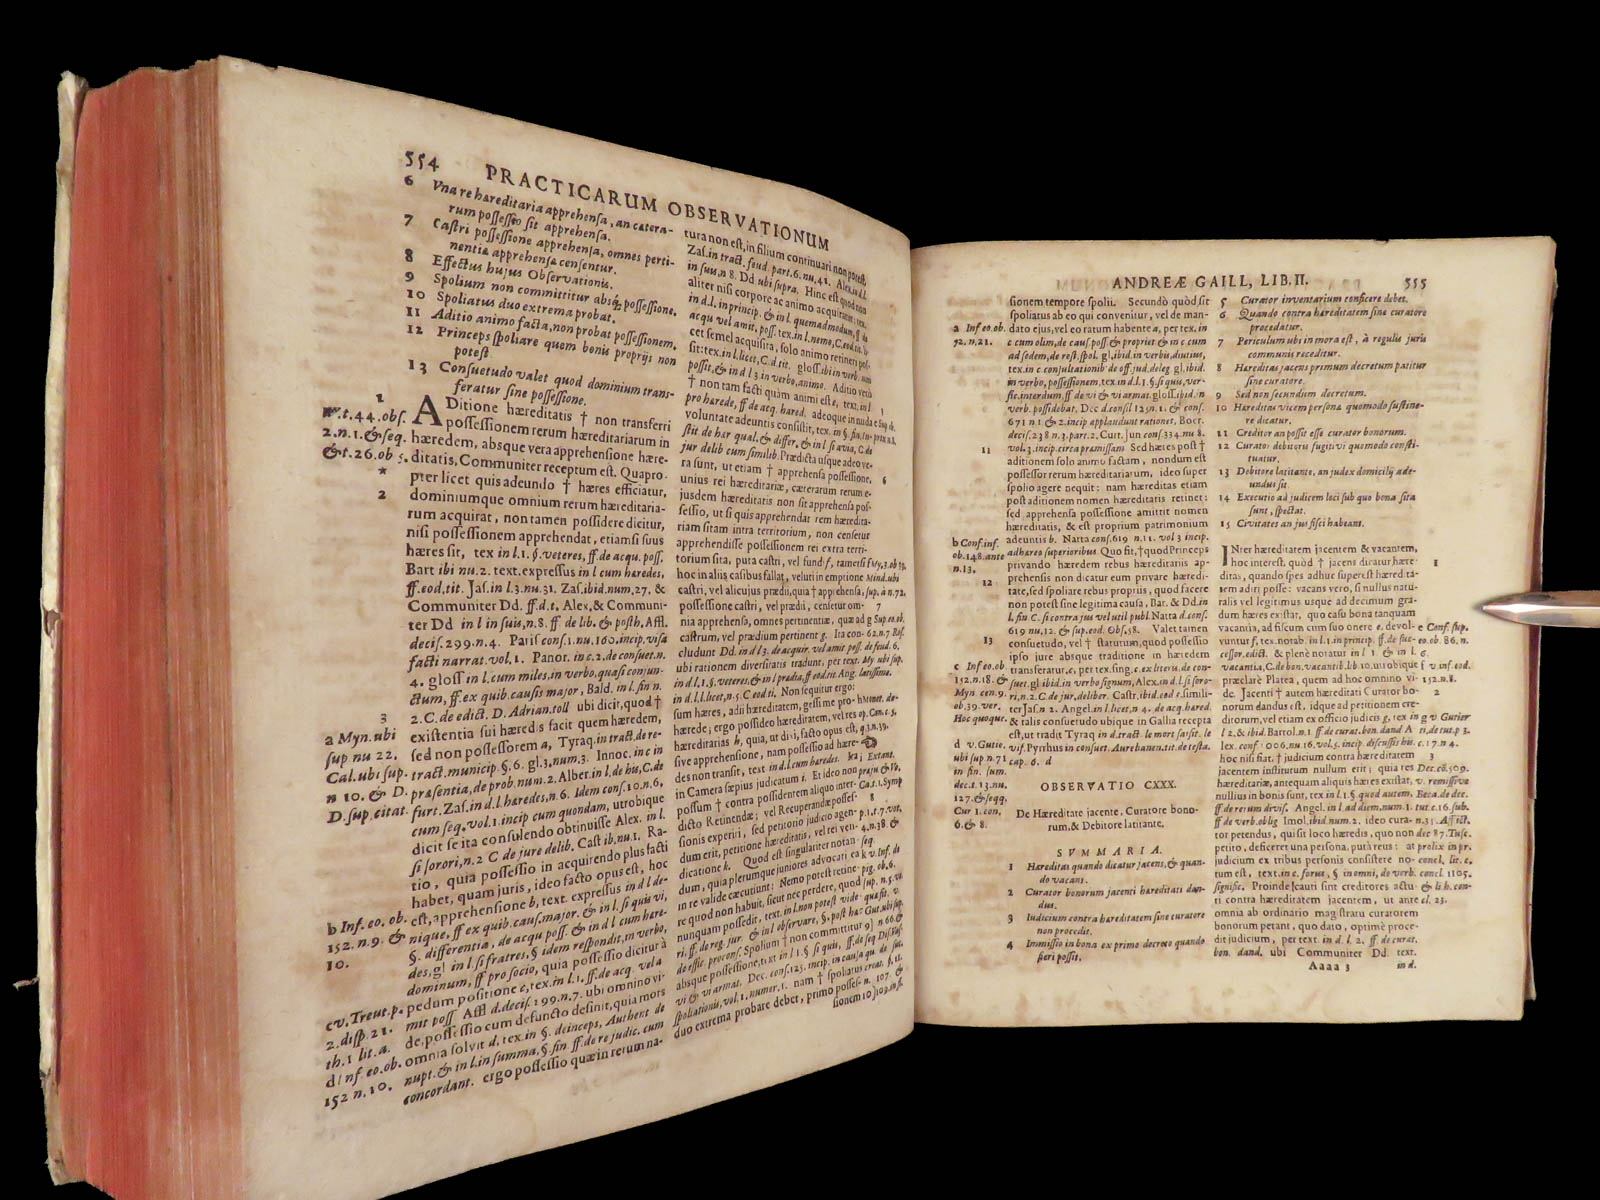 554 PRACTICARUM OBSERVATIONUM
6 Vna re hæreditaria apprehensa, an cætera-
rum possessio sit apprehensa.
7 Castri possessione apprehensa, omnes perti-
nentiæ apprehensæ censentur.
8 Effectus hujus Observationis.
9 Spolium non committitur absq; possessione.
10 Spoliatus duo extrema probat.
11 Aditio animo facta, non probat possessionem.
12 Princeps spoliare quem bonis proprijs non
potest.
13 Consuetudo valet quod dominium trans-
feratur sine possessione.
1
ADitione hæreditatis † non transferri
possessionem rerum hæreditariarum in
hæredem, absque vera apprehensione hære-
ditatis, Communiter receptum est. Quapro-
pter licet quis adeundo † hæres efficiatur,
dominiumque omnium rerum hæreditaria-
rum acquirat, non tamen possidere dicitur,
nisi possessionem apprehendat, etiamsi suus
hæres sit, tex in l. 1. §. veteres, ff. de acqu. poss.
Bart ibi nu. 2. text. expressus in l cum hæredes,
ff. eod. tit. Jas. in l. 3. nu. 31. Zas. ibid. num. 27. &
Communiter Dd. ff. d. t. Alex. & Communi-
ter Dd in l in suis, n. 8. ff de lib. & posth. Affl.
decis. 299. n. 4. Paris cons. 1. nu. 160. incip. visa
facti narrat. vol. 1. Panor. in c. 2. de consuet. n.
4. gloss in l. cum miles, in verbo, quasi conjun-
ctum, ff. ex quib. causis major, Bald. in l. fin n.
2. C. de edict. D. Adrian. toll ubi dicit, quod †
existentia sui hæredis facit quem hæredem,
sed non possessorem a, Tyraq. in tract. de re-
tract. municip. §. 6. gl. 3. num. 3. Innoc. in c in
præsentia, de prob. num. 2. Alber. in l. de his, C. de
furt. Zas. in d. l hæredes, n. 6. Idem cons. 10. n. 6,
cum seq. vol. 1. incip cum quondam, utrobique
dicit se ita consulendo obtinuisse Alex. in l.
si sorori, n. 2 C de jure delib. Cast ib. nu. 1. Ra-
tio, quia possessio in acquirendo plus facti
habet, quam juris, ideo facto opus est, hoc
est, apprehensione b, text. expressus in d l de-
nique, ff ex quib. caus. major. & in l. si quis vi,
§. differentia, de acqu poss. & in d l cum hære-
des, gl in l. si fratres, § idem respondit, in verbo,
dominum, ff pro socio, quia possessio dicitur à
pedum positione c, tex in l. 1. ff. de acq. vel a
mit poss Affl d. decis. 299. n. 7. ubi omnino vi-
de, possessio cum defuncto definit, quia mors
omnia solvit d. tex. in §. deinceps, Authent de
nupt. & in l. in summa, §. fin ff. de re judic. cum
concordant. ergo possessio quæ in rerum na-
t. 44. obs.
2. n. 1. & seq.
& t. 26. ob 5.
*
2
3
a Myn. ubi
sup nu 22.
Cal. ubi sup.
n 10. & D.
D. sup. citat.
b Inf. eo. ob.
152. n. 9. &
10.
c v. Treut. p.
2. disp. 21.
th. 1 lit. a.
d Inf eo. ob.
152 n. 10.
tura non est, in filium continuari non potest.
Zas. in tract. feud. part. 6. nu. 41. Alex. in d. l.
in suis, n 8. Dd ubi supra. Hinc est quod non
aliter nisi corpore ac animo acquiratur: tex.
in d. l. in princip. & in l. quemadmodum, ff de
acqu vel amit. poss. tex. in l. nemo, C. eod. tit.
cet semel acquisita, solo animo retineri pos-
sit: tex. in l. licet, C. d. tit. gloss. ibi in verb.
possit, & in d l 3 in verbo, animo. Aditio verò
† non tam facti quàm animi est e, text. in l
pro herede, ff de acq. hæred. adeoque in nuda
voluntate adeuntis consistit, tex. in §. fin. In-
stit de hær qual. & differ. & in l. si avia, C. de
jur delib cum similib. Prædicta usque adeo ve-
ra sunt, ut etiam † apprehensa possessione,
unius rei hæreditariæ, cæterarum rerum e-
jusdem hæreditatis non sit apprehensa pos-
sessio, ut si quis apprehendat rem hæredita-
riam sitam intra territorium, non censetur
apprehendisse possessionem rei extra terri-
torium sita, puta castri, vel fundi f, ramersi
hoc in aliis casibus fallat, veluti in emptione
castri, vel alicujus prædii, quia † apprehensa
possessione castri, vel prædii, censetur om-
nia apprehensa, omnes pertinentiæ, quæ ad
castrum, vel prædium pertinent g. Ita con-
cludunt Dd. in d l 3. de acquir. vel amit poss. de feud. 6.
ubi rationem diversitatis tradunt, per text.
in d. l. 1. §. veteres, & in l prædia, ff eod. tit Ang.
in d. l. l. licet, n. 5. C eod ti. Non sequitur ergo:
sum hæres, adii hæreditatem, gessi me pro
hærede; ergo possideo hæreditatem, vel res
hæreditarias h, quia, ut di i, facto opus est,
sive apprehensione, nam possessio ad hære-
des non transit, text in d l. cum hæredes.
in Camera sæpius judicatum i. Et ideo non
possum † contra possidentem aliquo inter-
dicto Retinendæ; vel Recuperandæ posses-
sionis experiri, sed petitorio judicio agen-
dum erit, petitione hæreditatis, vel rei vendi-
dicatione k. Quod est singulariter notan-
dum, quia plerumque juniores advocati ea
in re valde cæcutiunt: Nemo potest retine-
re quod non habuit, sicut nec perdere, quod
nunquam possedit, text. in l. non potest vide-
ri, ff. de reg. jur. & in l observare, §. post hæc
de offic. procons. Spolium † non committitur
absque possessione, text in l 1 § si quis, ff de
vi & vi armat. Dec. cons. 123. incip. in causa
spoliationis, vol. 1. numer. 1. nam † spoliatus
duo extrema probare debet, primo posses-
sionem
ANDREÆ GAILL, LIB. II. 555
sionem tempore spolii. Secundò quòd sit
spoliatus ab eo qui convenitur, vel de man-
dato ejus, vel eo ratum habente a, per tex. in
c cum olim, de caus. poss & propriet & in c cum
ad sedem, de rest. spol. gl. ibid. in verbis, diutius,
tex. in c. consultationib. de off. jud. deleg gl. ibid.
in verbo, possessionem, tex in d. l. 1. §. si quis, ver-
sic. interdum, ff de vi & vi armat. gloss. ibid. in
verb. possidebat, Dec d. consil 125 n. 1. & cons.
671 n 1 & 2. incip applaudunt rationes, Boer.
decis. 238 n 3. part. 2. Curt. Jun cons. 334. nu 8.
vol. 3. incip. circa præmissam Sed hæres post †
aditionem solo animo factam, nondum est
possessor rerum hæreditariarum, ideo super
spolio agere nequit: nam hæreditas etiam
post aditionem nomen hæreditatis retinet:
sed apprehensa possessione amittit nomen
hæreditatis, & est proprium patrimonium
adeuntis b. Natta cons. 619 n. 11. vol 3 incip.
adhæreo superioribus Quo fit, † quod Princeps
privando hæredem rebus hæreditariis ap-
prehensis non dicatur eum privare hæredi-
tate, sed spoliare rebus propriis, quod facere
non potest sine legitima causa, Bar. & Dd. in
l. fin C. si contra jus vel util publ. Natta d. cons.
619 nu. 12. & sup. eod. Obs. 58. Valet tamen
consuetudo, vel † statutum, quod possessio
ipso jure absque traditione in hæredem
transferatur c, per tex. sing. c. ex literis, de con-
suet. gl. ibid in verbo signum, Alex. in d. l. si soro-
ri, n. 2 C. de jur. deliber. Castr. ibid. eod e. simili-
ter Jas. n 2. Angel. in l. licet, n 4. de acq. hæred.
& talis consuetudo ubique in Gallia recepta
est, ut tradit Tyraq in d. tract. le mort saisit. le
vif. Pyrrhus in consuet. Aurebanen. tit. de testa.
cap. 6. d
a Inf eo. ob.
72. n. 21.
11
b Conf. inf.
ob. 148. ante
n. 13.
12
13
c Inf eo. ob.
152. n. 18. &
Myn. cen. 9.
ob. 39. ver.
Hoc quoque.
d v. Gutie.
ubi sup n. 71
in fin. sum.
dec. 1. 13. nu.
127. & seqq.
Cur 1. con.
6. & 8.
OBSERVATIO CXXX.
De Hæreditate jacente, Curatore bono-
rum, & Debitore latitante.
SVMMARIA.
1 Hæreditas quando dicatur jacens, & quan-
do vacans.
2 Curator bonorum jacenti hæreditati dan-
dus.
3 Iudicium contra hæreditatem sine curatore
non procedit.
4 Immissio in bona ex primo decreto quando
fieri possit.
5 Curator inventarium conficere debet.
6 Quando contra hæreditatem sine curatore
procedatur.
7 Periculum ubi in mora est, à regulis juris
communis receditur.
8 Hæreditas jacens primum decretum patitur
sine curatore.
9 Sed non secundum decretum.
10 Hæreditas vicem personæ quomodo sustine-
re dicatur.
11 Creditor an possit esse curator bonorum.
12 Curator debitoris fugitivi quomodo consti-
tuatur.
13 Debitore latitante, an judex domicilij ade-
undus sit.
14 Executio ad judicem loci sub quo bona sita
sunt, spectat.
15 Civitates an jus fisci habeant.
INter hæreditatem jacentem & vacantem,
hoc interest, quòd † jacens dicatur hære-
ditas, quando spes adhuc superest hæredita-
tem adiri posse: vacans vero, si nullus natu-
ralis vel legitimus usque ad decimum gra-
dum hæres existat, quo casu bona tanquam
vacantia, ad fiscum cum suo onere e. devol-
vuntur f, tex. notab. in l. 1. in princip. ff. de suc-
cessor. edict. & plenè notatur in l 1 & in l. 6.
vacantia, C. de bon. vacantib. lib 10. utrobique
præclarè Platea, quem ad hoc omnino vi-
de. Jacenti † autem hæreditati Curator bo-
norum dandus est. idque ad petitionem cre-
ditorum, vel etiam ex officio judicis g, tex in
l 2, & ibid. Bartol. n. 1 ff de curat. bon. dand A
lex. cons 006. nu 16. vol. 5. incip. discussis his.
hoc nisi fiat, † judicium contra hæreditatem
jacentem institutum nullum erit; quia res
hæreditariæ, antequam aliquis hæres existat,
nullius in bonis sunt, tex in l. 1. §. quod autem.
ff de rerum divis. Angel. in l ad diem, num. 1.
ff de verb. oblig Imol. ibid. num 2. ideo cura-
tor petendus, qui sit loco hæredis, quo non
petito, deficeret una persona, puta reus: at
judicium ex tribus personis consistere no-
tum est, text. in c. forus, § in omni, de verb.
signific. Proinde † cauti sint creditores actu-
ri contra hæreditatem jacentem, ut ante
omnia ab ordinario magistratu curatorem
bonorum petant, quo dato, optimè proce-
dit judicium, per text. in d. l. 2. ff. de curat.
bon. dand. ubi Communiter Dd. text.
Aaaa 3 in d.
1
e Conf. sup.
eo. ob. 86. n.
6.
f v inf. eod.
152. n. 8.
2
g v Gutier
3
Dec. cō. 509.
v. remissive
prolix in pr.
concl. lit. c.
concl. 1105.
& li. h. con-
cl. 23.